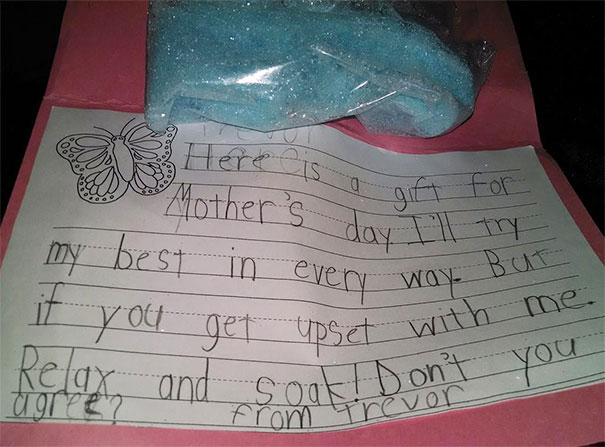 Trevor
Here is a gift for
Mother's day. I'll try
my best in every way. But
if you get upset with me.
Relax and soak! Don't you
agree?
from Trevor